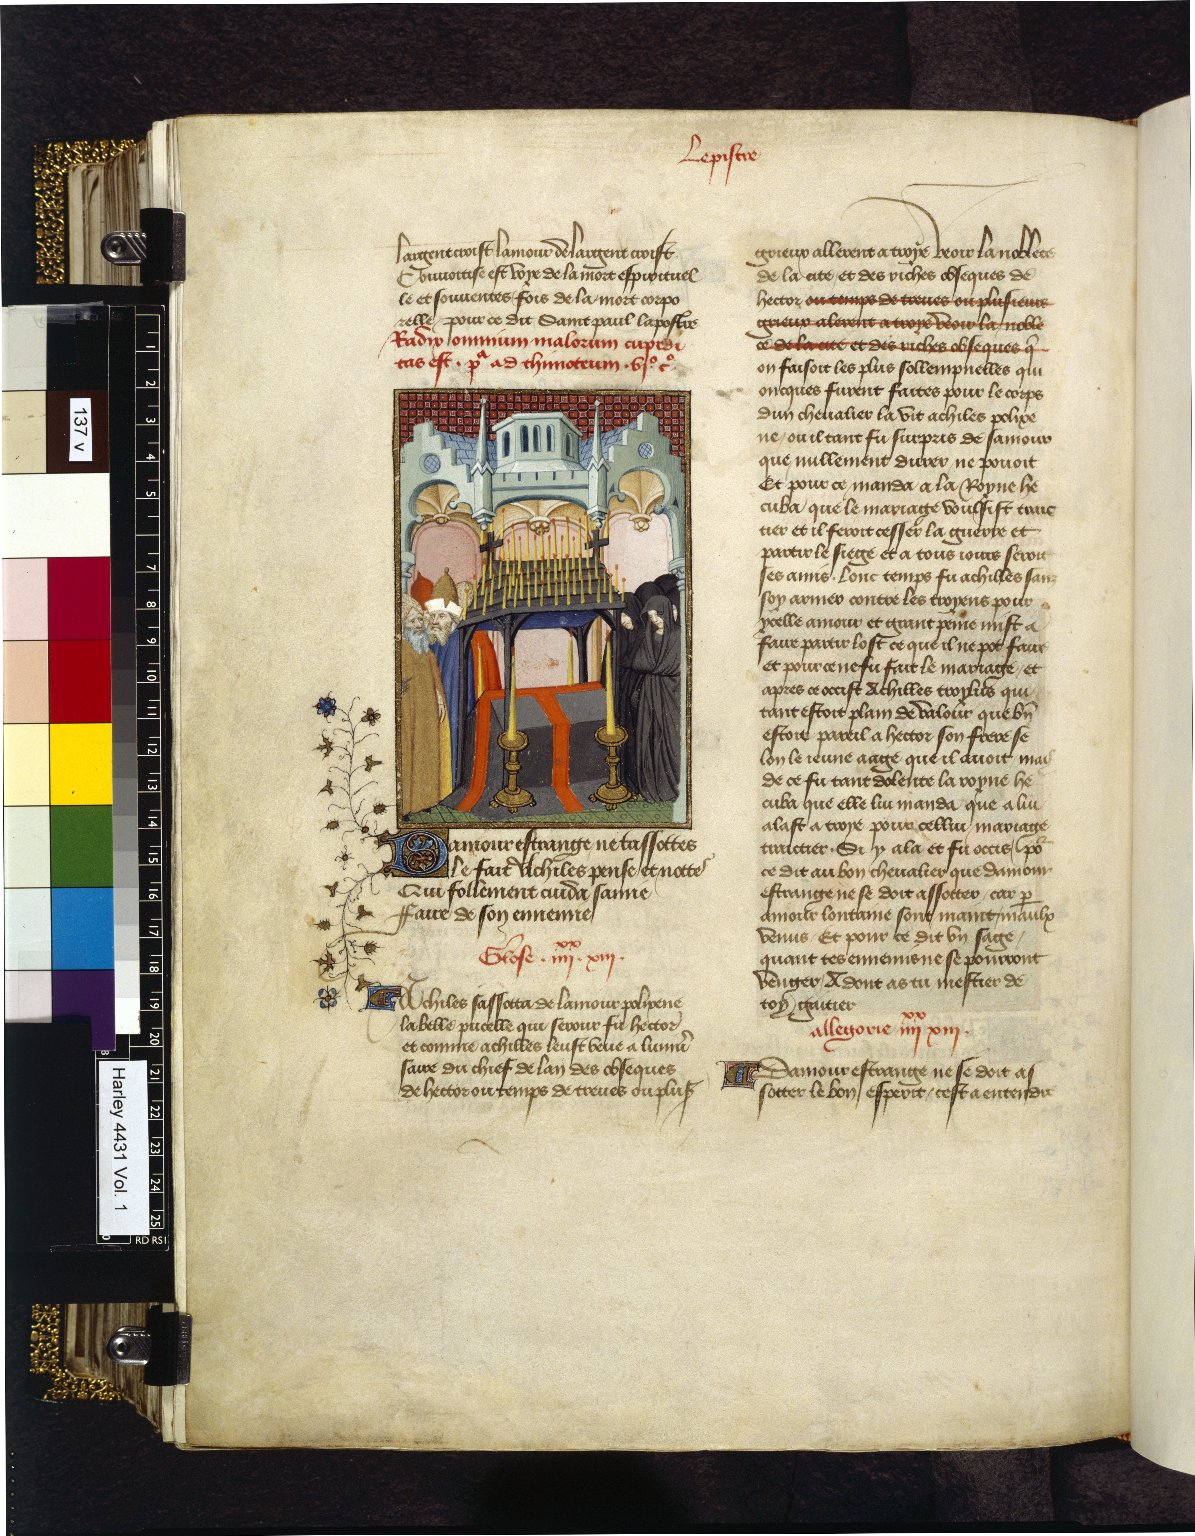 Lepistre
largent croist lamour de largent croist
Couuoitise est voye de la mort espirituel
le et souuentes fois de la mort corpo
relle pour ce dit Saint paul lapostre
Radix omnium malorum cupidi
tas est . pa ad thimoteum . vjo. co.
Damour estrange ne tassottes
le fait dachiles pense et notte
Qui follement cuida samie
Faire de son ennemie
Glose . iiiixx . xiii .
Achiles sassotta de lamour polixene
la belle pucelle qui serour fu hector
et comme achilles leust veue a luniu'
saire du chief de lan des obseques
de hector ou temps de treues ou plus's
grieux allerent a troye veoir la noblece
de la cite et des riches obseques de
hector ou temps de treues ou plusieurs
grieux alerent a troye veoir la noble
ce de la cite et des riches obseques q'
on faisoit les plus sollempnelles qui
oncques furent faites pour le corps
dun cheualier la vit achiles polixe
ne / ou il tant fu surpris de samour
que nullement durer ne pouoit
Et pour ce manda a la Royne he
cuba que le mariage voulsist traic
tier et il feroit cesser la guerre et
partir le siege et a tous iours seroit
ses amis . Lonc temps fu achilles sans
soy armer contre les troyens pour
ycelle amour et grant peine mist a
faire partir lost ce que il ne pot faire
et pour ce ne fu fait le mariage / et
apres ce occist Achilles troylus qui
tant estoit plain de valour que bn̄
estoit pareil a hector son frere se
lon le ieune aage que il auoit mais
de ce fu tant dolente la royne he
cuba que elle lui manda que a lui
alast a troye pour cellui mariage
traictier . Si y ala et fu occis / po'
ce dit au bon cheualier que damour
estrange ne se doit assotter / car p
amour lontaine sont maint maulx
venus . Et pour ce dit vn sage /
quant tes ennemis ne se pourront
venger / Adont as tu mestier de
toy gaitier
allegorie iiiixx xiii .
Damour estrange ne se doit as
sotter le bon esperit / cest a entendre
137 v
1
2
3
4
5
7
8
9
10
11
12
13
14
15
16
17
18
19
20
21
22
23
24
25
Harley 4431 Vol. 1